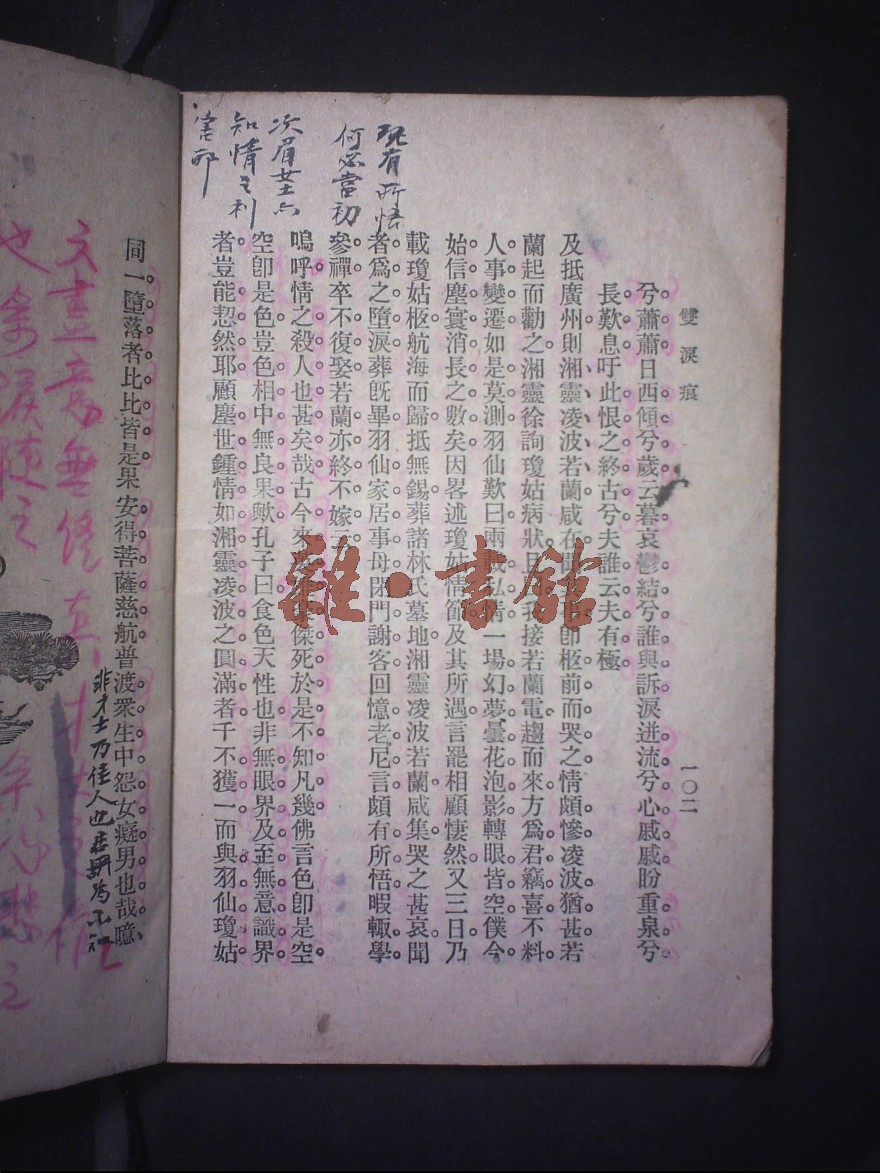 雙淚痕
一〇二
兮蕭蕭日西傾兮歲云暮哀鬱結兮誰與訴淚迸流兮心戚戚盼重泉兮
長歎息吁此恨之終古兮夫誰云夫有極
及抵廣州則湘靈凌波若蘭咸在即柩前而哭之情頗慘凌波猶甚若
蘭起而勸之湘靈徐詢瓊姑病狀接若蘭電趨而來方爲君竊喜不料
人事變遷如是莫測羽仙歎曰兩載私情一場幻夢曇花泡影轉眼皆空僕今
始信塵寰消長之數矣因畧述瓊姑情節及其所遇言罷相顧悽然又三日乃
載瓊姑柩航海而歸抵無錫葬諸林氏墓地湘靈凌波若蘭咸集哭之甚哀聞
者爲之墮淚葬旣畢羽仙家居事母閉門謝客回憶老尼言頗有所悟暇輙學
參禪卒不復娶若蘭亦終不嫁
嗚呼情之殺人也甚矣哉古今來傑死於是不知凡幾佛言色卽是空
空卽是色豈色相中無良果歟孔子曰食色天性也非無眼界及至無意識界
者豈能恝然耶顧塵世鍾情如湘靈凌波之圓滿者千不獲一而與羽仙瓊姑
旣有所悟
何必當初
次眉女士亦
知情之利
害耶
雜·書館
同一墮落者比比皆是果安得菩薩慈航普渡衆生中怨女癡男也哉噫
非才士乃佳人也
文盡意無
也余淚隨之